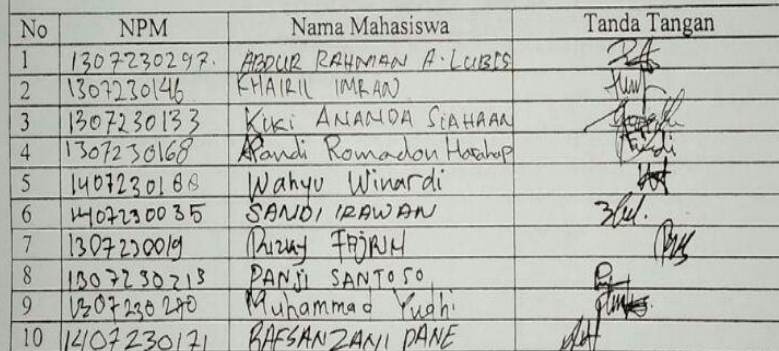 No NPM Nama Mahasiswa Tanda Tangan
1 1307230297. ABDUR RAHMAN A. LUBIS
2 1307230146 KHAIRIL IMRAN
3 1307230133 KIKI ANANDA SIAHAAN
4 1307230168 Pandi Romadon Harahap
5 1407230188 Wahyu Winardi
6 1407230035 SANDI IRAWAN
7 1307230019 Rizky FAJRIN
8 1307230213 PANJI SANTOSO
9 1307230280 Muhammad Yudhi
10 1407230171 RAFSANZANI PANE